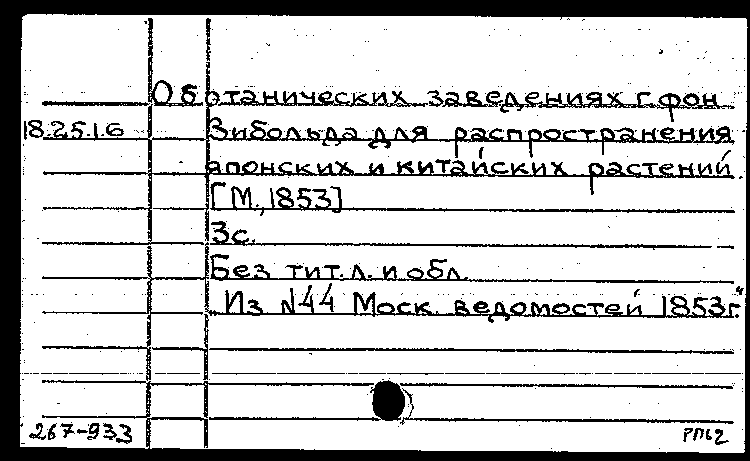 Об отанических заведениях г. фон
18.25.1.6 Зибольда для распространения
японских и китайских растений
[М., 1853]
3с.
Без тит. л. и обл.
„Из N44 Моск. ведомостей 1853г."
267-933